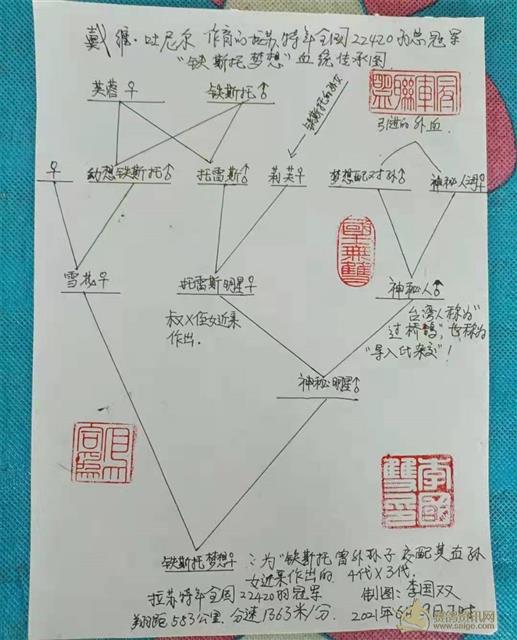 戴维·吐尼尔 作育的拉苏特年全国22420羽总冠军
"铁斯托梦想"血统传承图
芙蓉♀ 铁斯托♂
铁斯托的
引进的外血
♀ 幼想铁斯托♂ 托雷斯♂ 莉芙♀ 梦想配对孙♂ 神秘人
雪花♀ 托雷斯明星♀ 神秘人♂
叔X侄女近巢
作出.
台湾人称为"
过桥鸽",也称为
"导入比杂交"!
神秘明星♂
铁斯托梦想♀ ∴为"铁斯托雷外孙子交配其血孙
女近巢作出的 4代X3代.
拉苏特年全国22420羽冠军 制图:李国双
翔距583公里.分速1363米/分. 2021年6月9日
赛鸽资讯网
www.saige.com